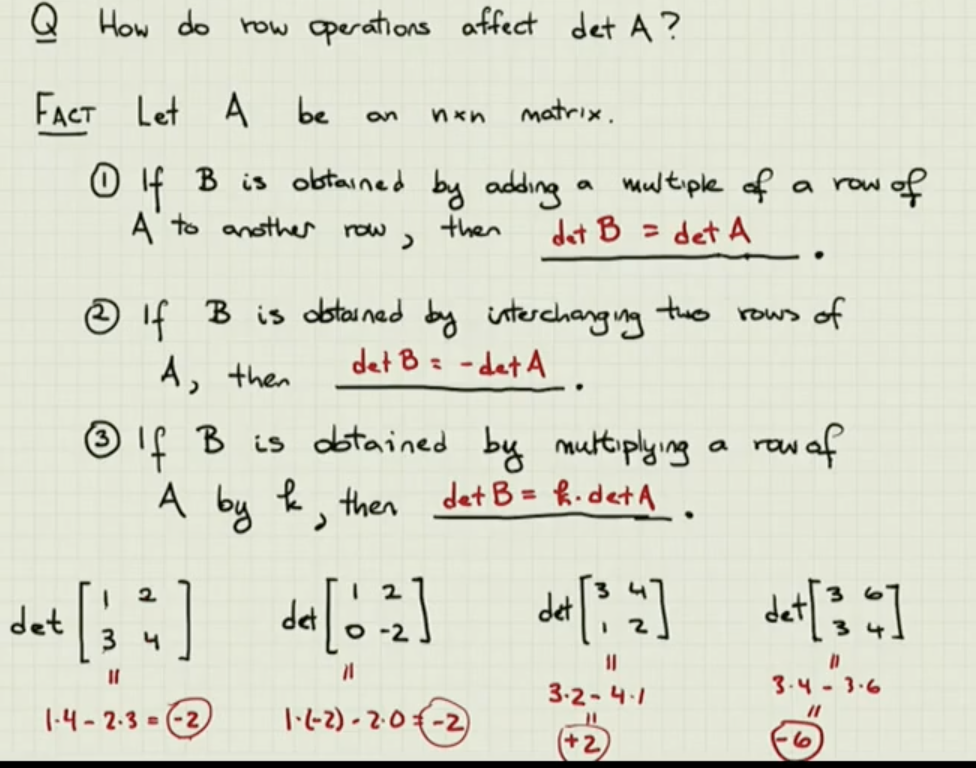 Q How do row operations affect det A?
FACT Let A be an n×n matrix.
① If B is obtained by adding a multiple of a row of
A to another row, then det B = det A.
② If B is obtained by interchanging two rows of
A, then det B = -det A.
③ If B is obtained by multiplying a row of
A by k, then det B = k·det A.
det [1 2 det [1 2 det [3 4 det [3 6
3 4] 0 -2] 1 2] 3 4]
= = = =
1·4 - 2·3 = -2 1·(-2) - 2·0 = -2 3·2 - 4·1 3·4 - 3·6
= =
+2 -6